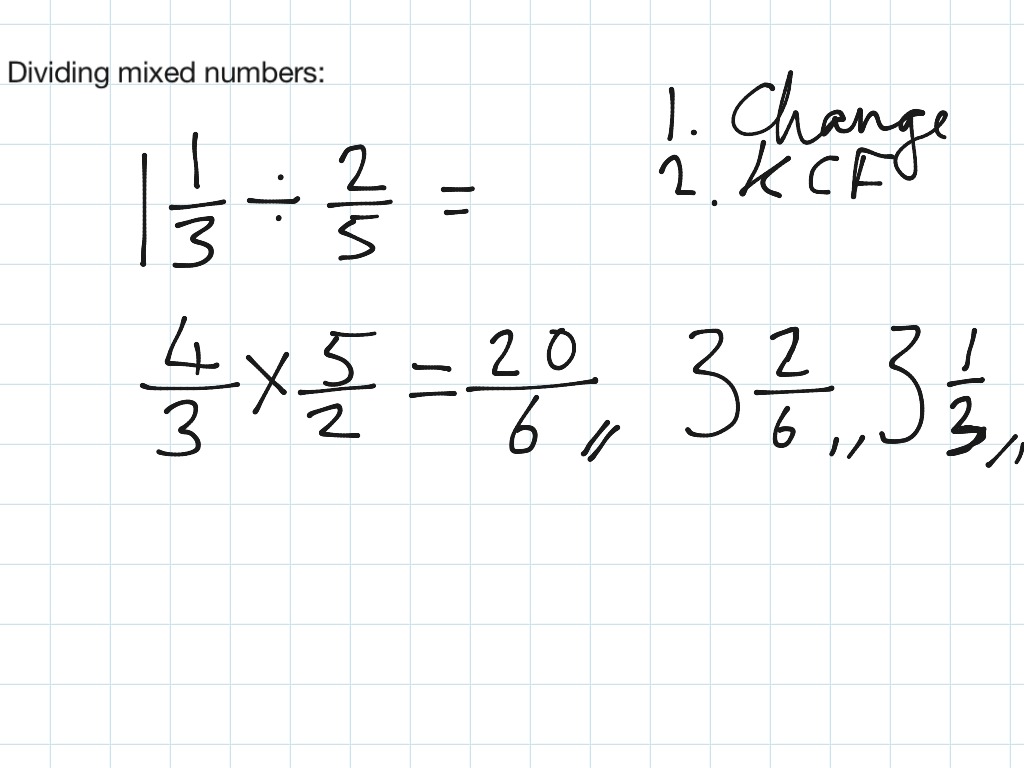 Dividing mixed numbers:
1. Change
2. KCF
1 1/3 ÷ 2/5 =
4/3 × 5/2 = 20/6 // 3 2/6 ,, 3 1/3 ,,